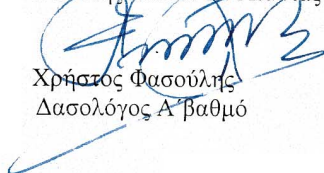 Χρήστος Φασούλης
Δασολόγος Α΄βαθμό